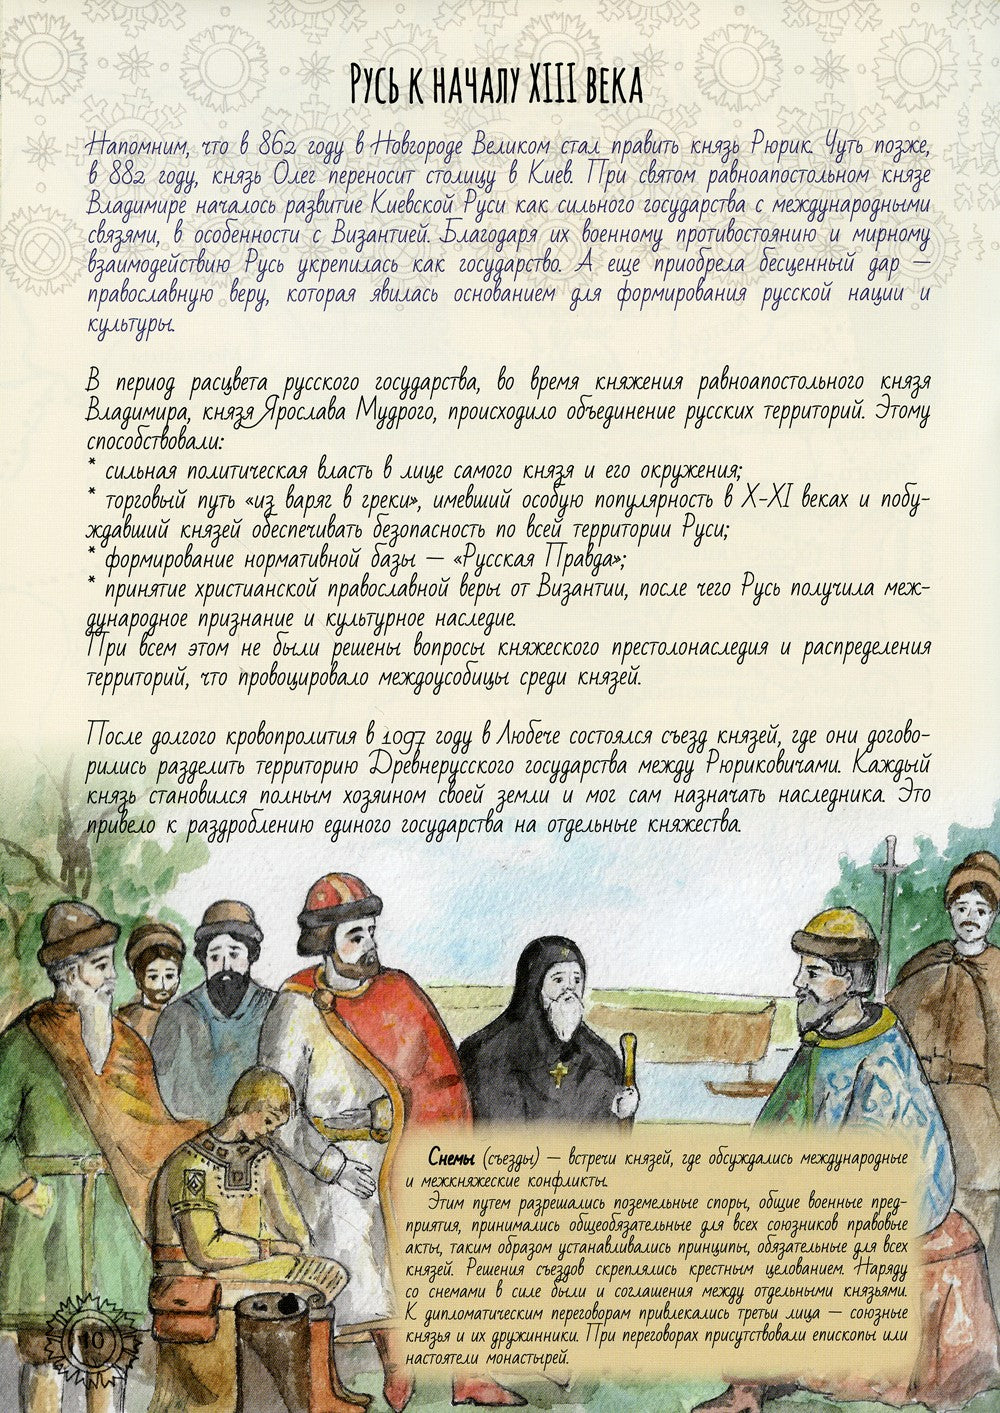 Русь к началу XIII века
Напомним, что в 862 году в Новгороде Великом стал править князь Рюрик. Чуть позже,
в 882 году, князь Олег переносит столицу в Киев. При святом равноапостольном князе
Владимире началось развитие Киевской Руси как сильного государства с международными
связями, в особенности с Византией. Благодаря их военному противостоянию и мирному
взаимодействию Русь укрепилась как государство. А еще приобрела бесценный дар —
православную веру, которая явилась основанием для формирования русской нации и
культуры.
В период расцвета русского государства, во время княжения равноапостольного князя
Владимира, князя Ярослава Мудрого, происходило объединение русских территорий. Этому
способствовали:
* сильная политическая власть в лице самого князя и его окружения;
* торговый путь «из варяг в греки», имевший особую популярность в X-XI веках и побу-
ждавший князей обеспечивать безопасность по всей территории Руси;
* формирование нормативной базы — «Русская Правда»;
* принятие христианской православной веры от Византии, после чего Русь получила меж-
дународное признание и культурное наследие.
При всем этом не были решены вопросы княжеского престолонаследия и распределения
территорий, что провоцировало междоусобицы среди князей.
После долгого кровопролития в 1097 году в Любече состоялся съезд князей, где они догово-
рились разделить территорию Древнерусского государства между Рюриковичами. Каждый
князь становился полным хозяином своей земли и мог сам назначать наследника. Это
привело к раздроблению единого государства на отдельные княжества.
Снемы (съезды) — встречи князей, где обсуждались международные
и межкняжеские конфликты.
Этим путем разрешались поземельные споры, общие военные пред-
приятия, принимались общеобязательные для всех союзников правовые
акты, таким образом устанавливались принципы, обязательные для всех
князей. Решения съездов скреплялись крестным целованием. Наряду
со снемами в силе были и соглашения между отдельными князьями.
К дипломатическим переговорам привлекались третьи лица — союзные
князья и их дружинники. При переговорах присутствовали епископы или
настоятели монастырей.
10